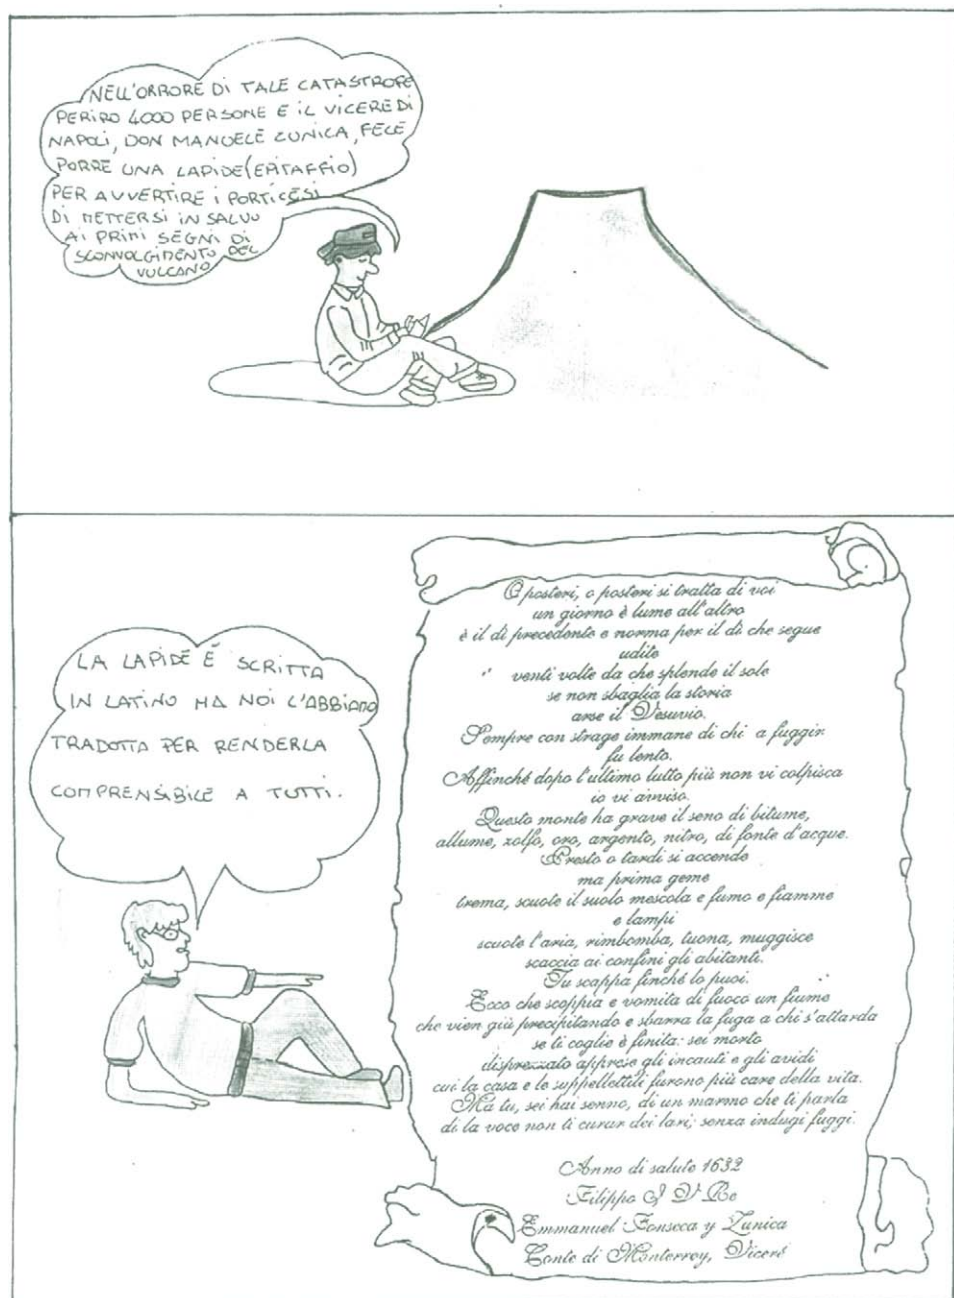 NELL'ORRORE DI TALE CATASTROFE
PERIRO 4000 PERSONE E IL VICERE DI
NAPOLI, DON MANUELE ZUNICA, FECE
PORRE UNA LAPIDE (EPITAFFIO)
PER AVVERTIRE I PORTICESI
DI METTERSI IN SALVO
AI PRIMI SEGNI DI
SCONVOLGIMENTO DEL
VULCANO
LA LAPIDE È SCRITTA
IN LATINO MA NOI L'ABBIAMO
TRADOTTA PER RENDERLA
COMPRENSIBILE A TUTTI.
O posteri, o posteri si tratta di voi
un giorno è lume all'altro
è il dì precedente e norma per il dì che segue
udite
venti volte da che splende il sole
se non sbaglia la storia
arse il Vesuvio.
Sempre con strage immane di chi a fuggir
fu lento.
Affinché dopo l'ultimo lutto più non vi colpisca
io vi avviso.
Questo monte ha grave il seno di bitume,
allume, zolfo, oro, argento, nitro, di fonte d'acque.
Presto o tardi si accende
ma prima geme
trema, scuote il suolo mescola e fumo e fiamme
e lampi
scuote l'aria, rimbomba, tuona, muggisce
scaccia ai confini gli abitanti.
Tu scappa finché lo puoi.
Ecco che scoppia e vomita di fuoco un fiume
che vien giù precipitando e sbarra la fuga a chi s'attarda
se ti coglie è finita: sei morto
disprezzato apprese gli incauti e gli avidi
cui la casa e le suppellettili furono più care della vita.
Ma tu, sei hai senno, di un marmo che ti parla
di la voce non ti curar dei lari; senza indugi fuggi.
Anno di salute 1632
Filippo I V Re
Emmanuel Fonseca y Zunica
Conte di Monterroy, Viceré